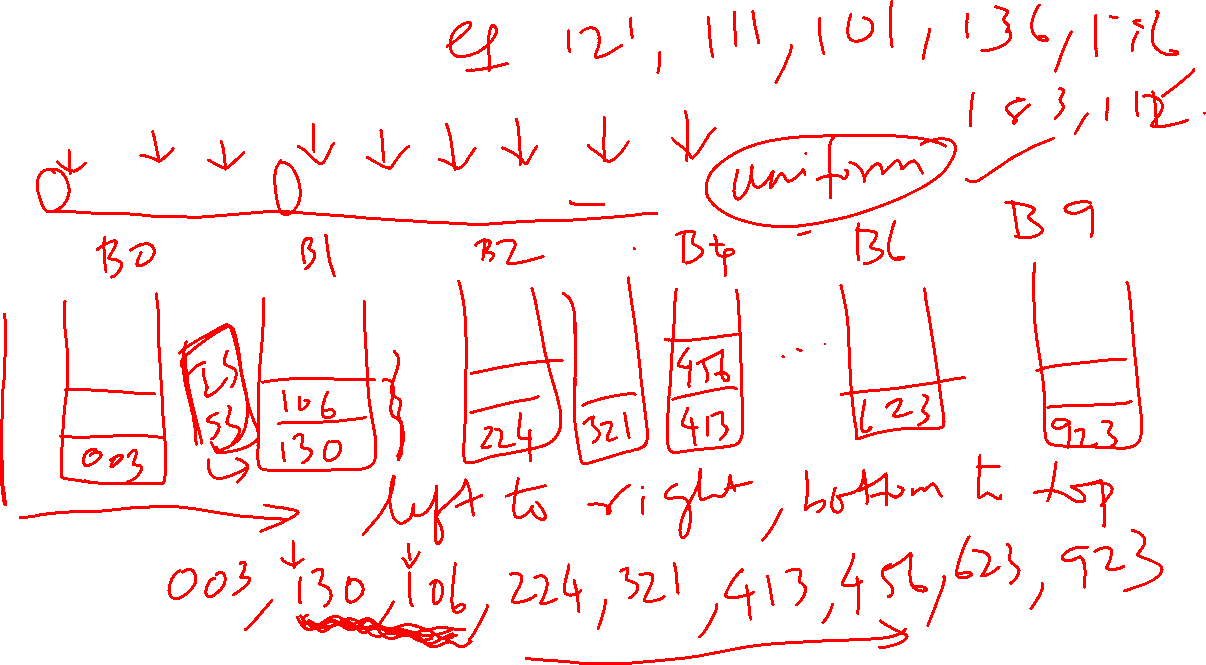 eg 121, 111, 101, 136, 1
183, 112.
uniform
B0 B1 B2 B4 B6 B9
456
106
003 130 224 321 413 623 923
left to right, bottom to top
003, 130, 106, 224, 321, 413, 456, 623, 923